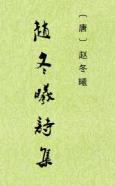 〔唐〕赵冬曦
趙冬曦詩集